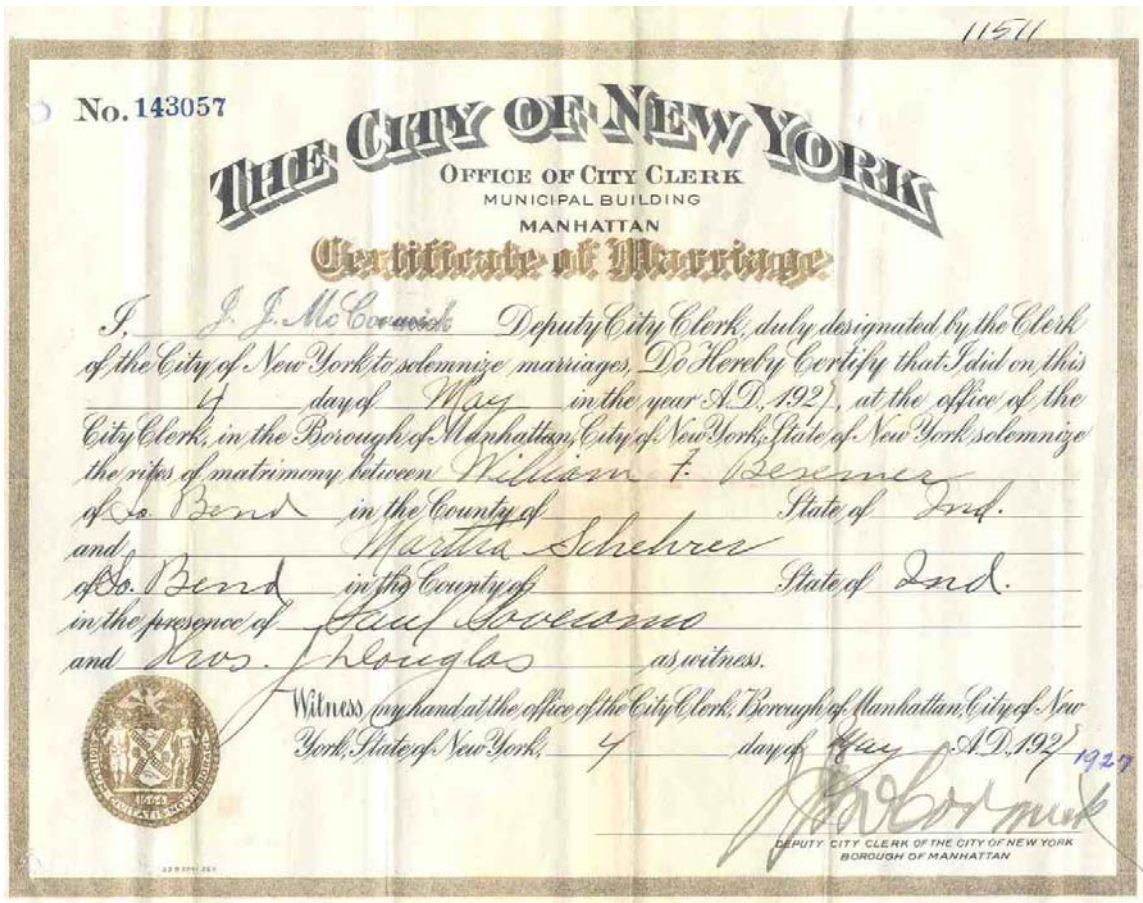 11511
No. 143057
THE CITY OF NEW YORK
OFFICE OF CITY CLERK
MUNICIPAL BUILDING
MANHATTAN
Certificate of Marriage
I, J. J. McCormick Deputy City Clerk, duly designated by the Clerk
of the City of New York to solemnize marriages, Do Hereby Certify that I did on this
4 day of May in the year A.D., 1927, at the office of the
City Clerk, in the Borough of Manhattan, City of New York, State of New York solemnize
the rites of matrimony between William F. Besemer
of So. Bend in the County of State of Ind.
and Martha Schehrer
of So. Bend in the County of State of Ind.
in the presence of
and Douglas as witness.
Witness my hand at the office of the City Clerk, Borough of Manhattan, City of New
York, State of New York, 4 day of May A.D. 1927
1927
J J McCormick
DEPUTY CITY CLERK OF THE CITY OF NEW YORK
BOROUGH OF MANHATTAN